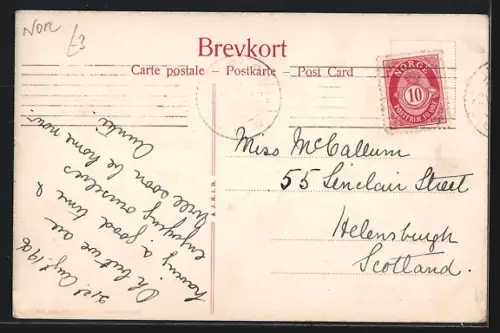 NOR
£3
Brevkort
Carte postale – Postkarte – Post Card
NORGE
10
POSTFRIM
A.J.K.I.B.
Miss McCallum
55 Sinclair Street
Helensburgh
Scotland.
31st Aug. 1906
Oh but we are
having a good time &
enjoying ourselves
Will soon be home now
Auntie